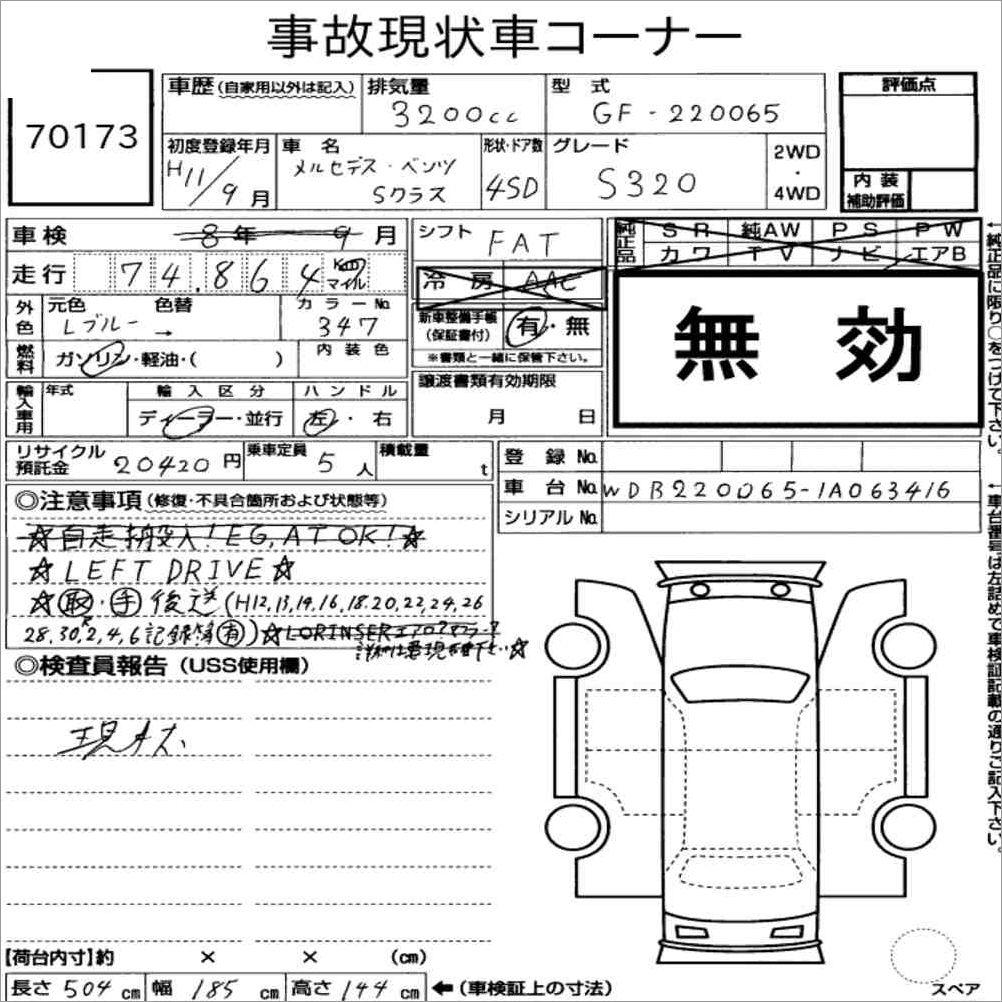 事故現状車コーナー
70173
車歴(自家用以外は記入)
排気量
3200cc
型式
GF-220065
評価点
初度登録年月
H11/9月
車名
メルセデス・ベンツ
Sクラス
形状・ドア数
4SD
グレード
S320
2WD
・
4WD
内装
補助評価
車検
8年 9月
シフト
FAT
純正品
SR 純AW PS PW
カワ TV ナビ エアB
走行
74.864
Km
マイル
冷房 AAC
外色
元色 色替
Lブルー →
カラーNo.
347
新車整備手帳
(保証書付)
有・無
※書類と一緒に保管下さい。
無効
燃料
ガソリン・軽油・( )
内装色
輸入車用
年式
輸入区分
ディーラー・並行
ハンドル
左・右
譲渡書類有効期限
月 日
リサイクル
預託金
20420円
乗車定員
5人
積載量
t
登録No.
車台No. WDB220065-1A063416
シリアルNo.
←純正品に限り○をつけて下さい。
←車台番号は左詰めで車検証記載の通りご記入下さい。
◎注意事項(修復・不具合箇所および状態等)
☆自走搬入!EG,ATOK!☆
☆LEFT DRIVE☆
☆取・手後送(H12,13,14,16,18,20,22,24,26
28,30,R2,4,6記録簿有)☆LORINSERエアロ
◎検査員報告(USS使用欄)
現状
【荷台内寸】約 × × (cm)
長さ504cm 幅185cm 高さ144cm ←(車検証上の寸法)
スペア